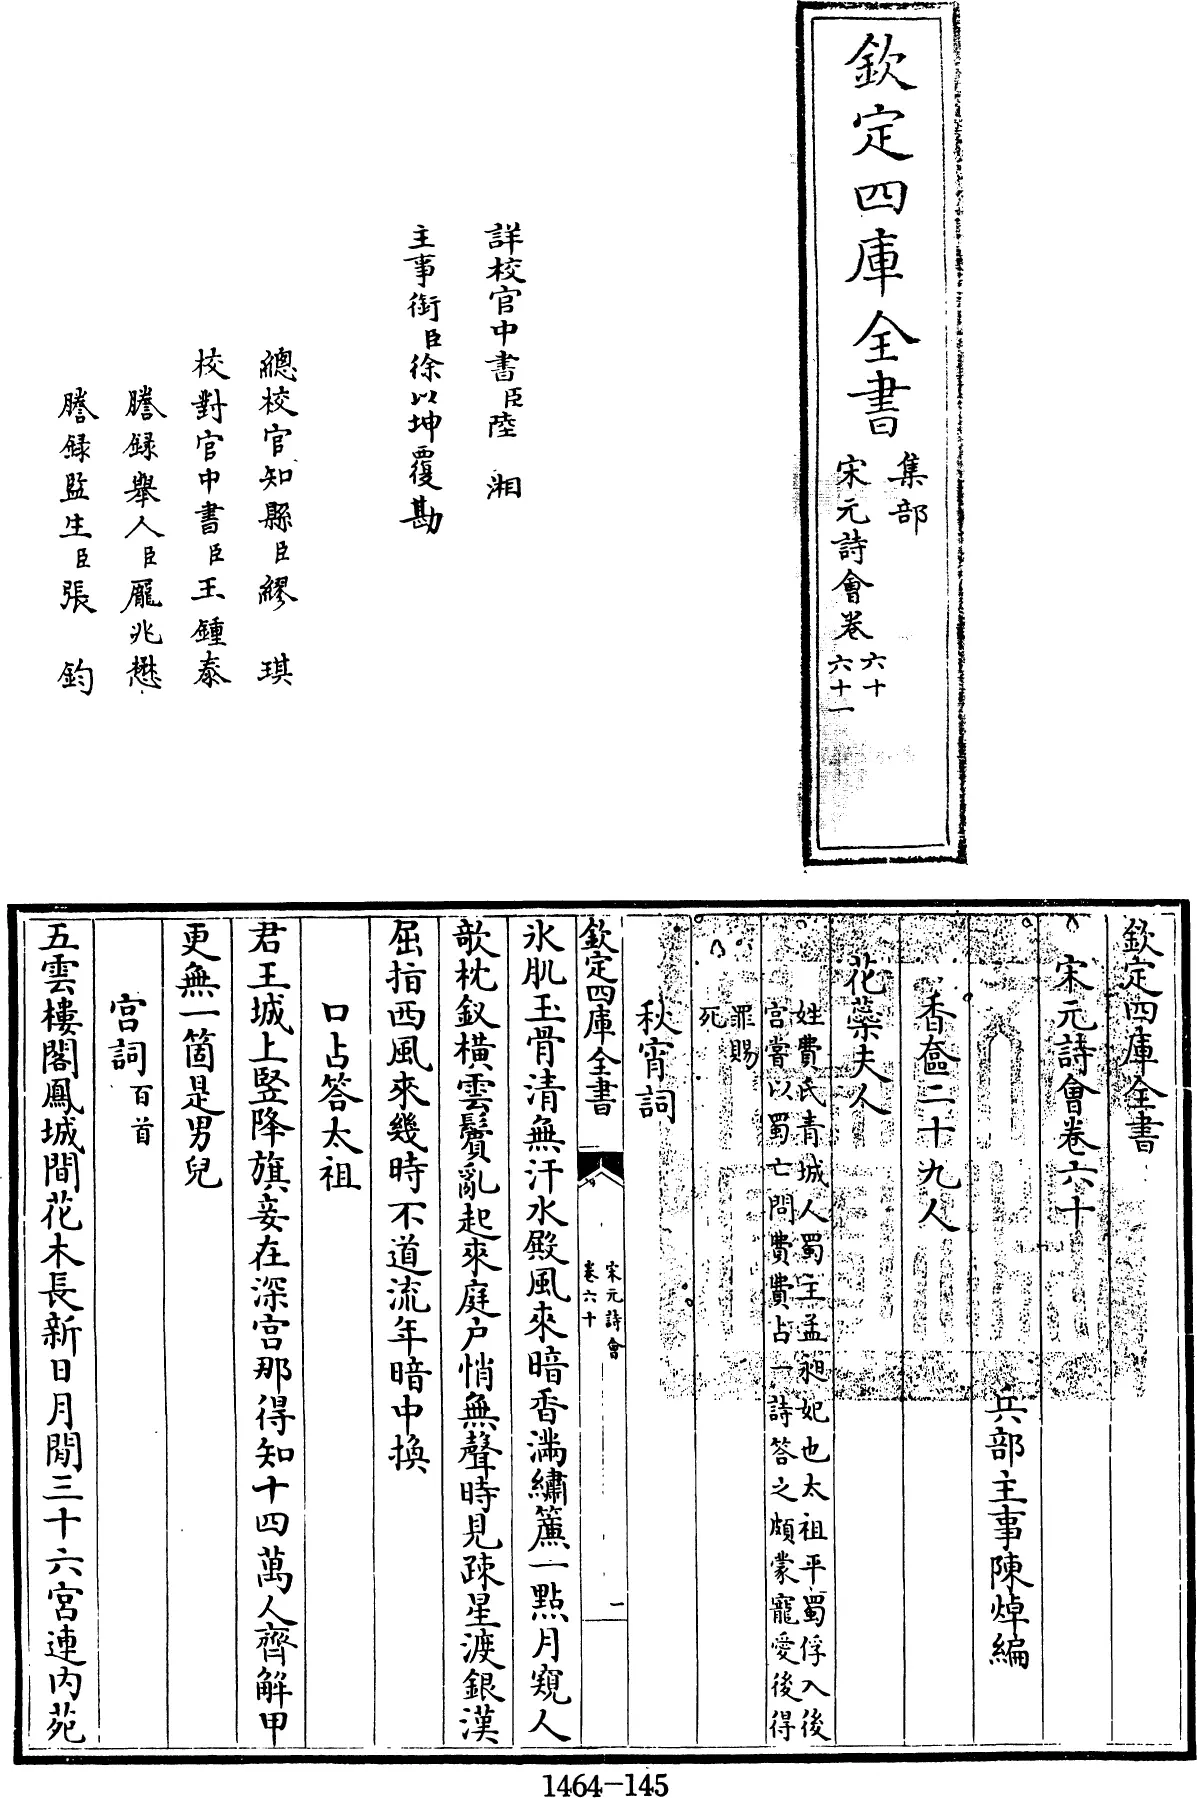 欽定四庫全書
集部
宋元詩會卷
六十
六十一
詳校官中書臣陸湘
主事銜臣徐以坤覆勘
總校官知縣臣繆琪
校對官中書臣王鍾泰
謄録舉人臣龎兆懋
謄録監生臣張鈞
欽定四庫全書
宋元詩會卷六十
兵部主事陳焯編
香奩二十九人
花蘂夫人
姓費氏青城人蜀主孟昶妃也太祖平蜀俘入後
宫嘗以蜀亡問費費占一詩答之頗蒙寵愛後得
罪賜
死
秋宵詞
欽定四庫全書
宋元詩會
卷六十
一
氷肌玉骨清無汗水殿風來暗香滿繡簾一點月窺人
欹枕釵橫雲鬢亂起來庭户悄無聲時見疎星渡銀漢
屈指西風來幾時不道流年暗中換
口占答太祖
君王城上竪降旗妾在深宫那得知十四萬人齊解甲
更無一箇是男兒
宫詞百首
五雲樓閣鳳城間花木長新日月閒三十六宫連内苑
1464-145